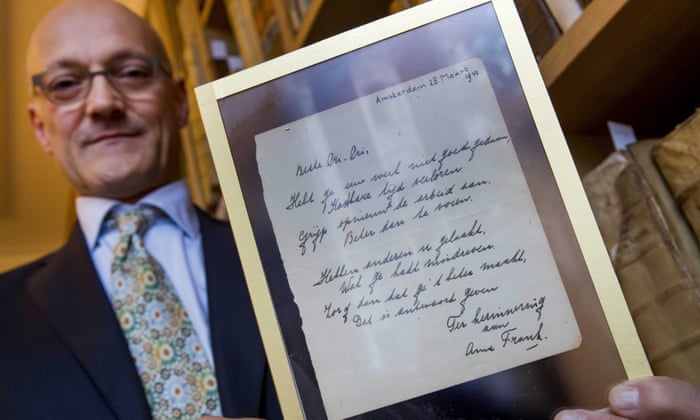 Amsterdam 28 Maart 1942
Beste Cri-Cri,
Hebt ge uw werk niet goed gedaan,
Kostbare tijd verloren,
Grijp opnieuw de arbeid aan,
Beter dan te voren.
Hebben anderen u gelaakt,
Wat ge hadt misdreven.
Zorg dan dat ge 't beter maakt,
Dat is antwoord geven
Ter herinnering
aan
Anne Frank.